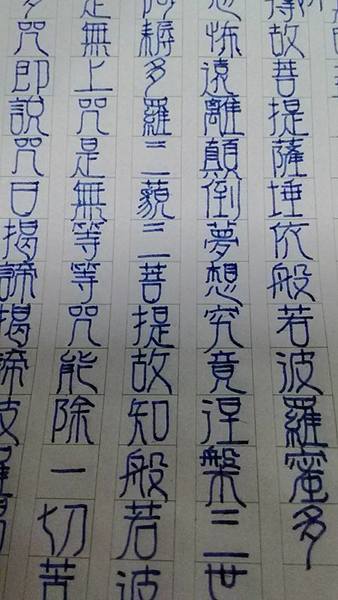 得故菩提薩埵依般若波羅蜜多
恐怖遠離顛倒夢想究竟涅槃三世
阿耨多羅三藐三菩提故知般若波
是無上咒是無等等咒能除一切苦
多咒即說咒曰揭諦揭諦波羅